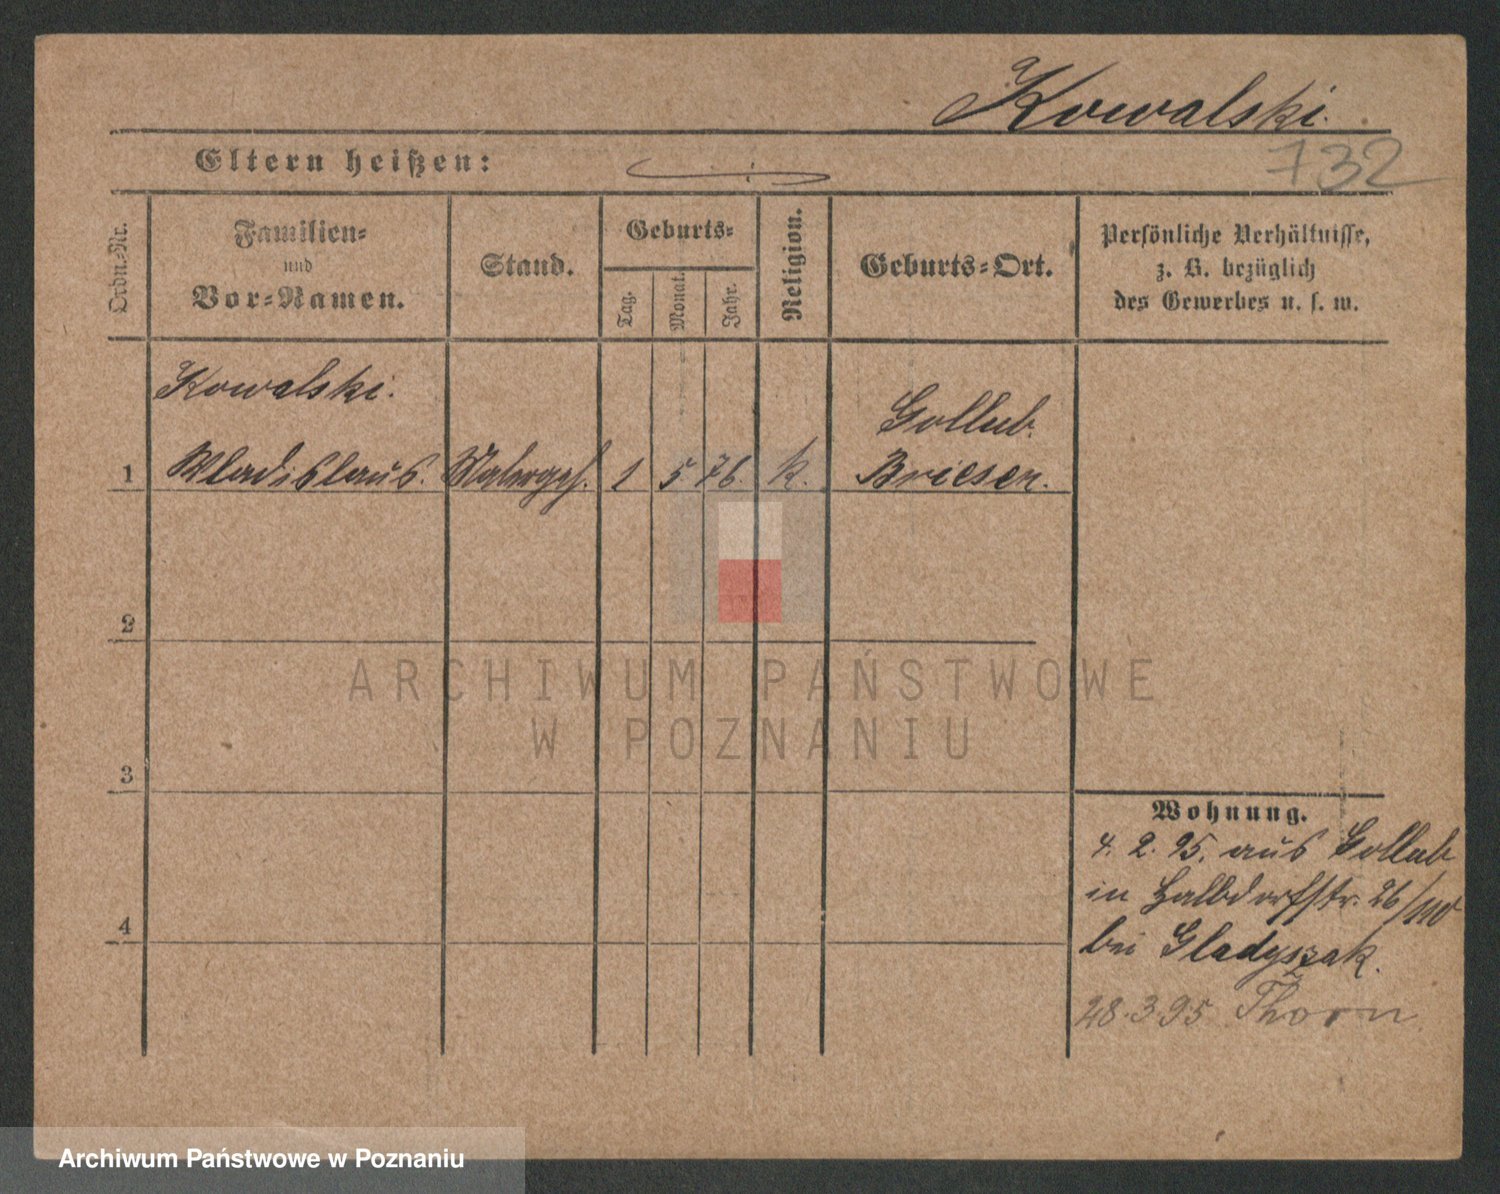 Kowalski.
Eltern heißen:
732
Ordn.-Nr.
Familien-
und
Vor-Namen.
Stand.
Geburts-
Tag.
Monat.
Jahr.
Religion.
Geburts-Ort.
Persönliche Verhältnisse,
z. B. bezüglich
des Gewerbes u. s. w.
Kowalski.
Gollub.
1 Wladislaus. Malergeh. 1 5 76. k. Briesen.
2
ARCHIWUM PAŃSTWOWE
W POZNANIU
3
Wohnung.
4. 2. 95. aus Gollub
in Halbdorfstr. 26/
4
bei Gladyszak.
28.3.95 Thorn
Archiwum Państwowe w Poznaniu